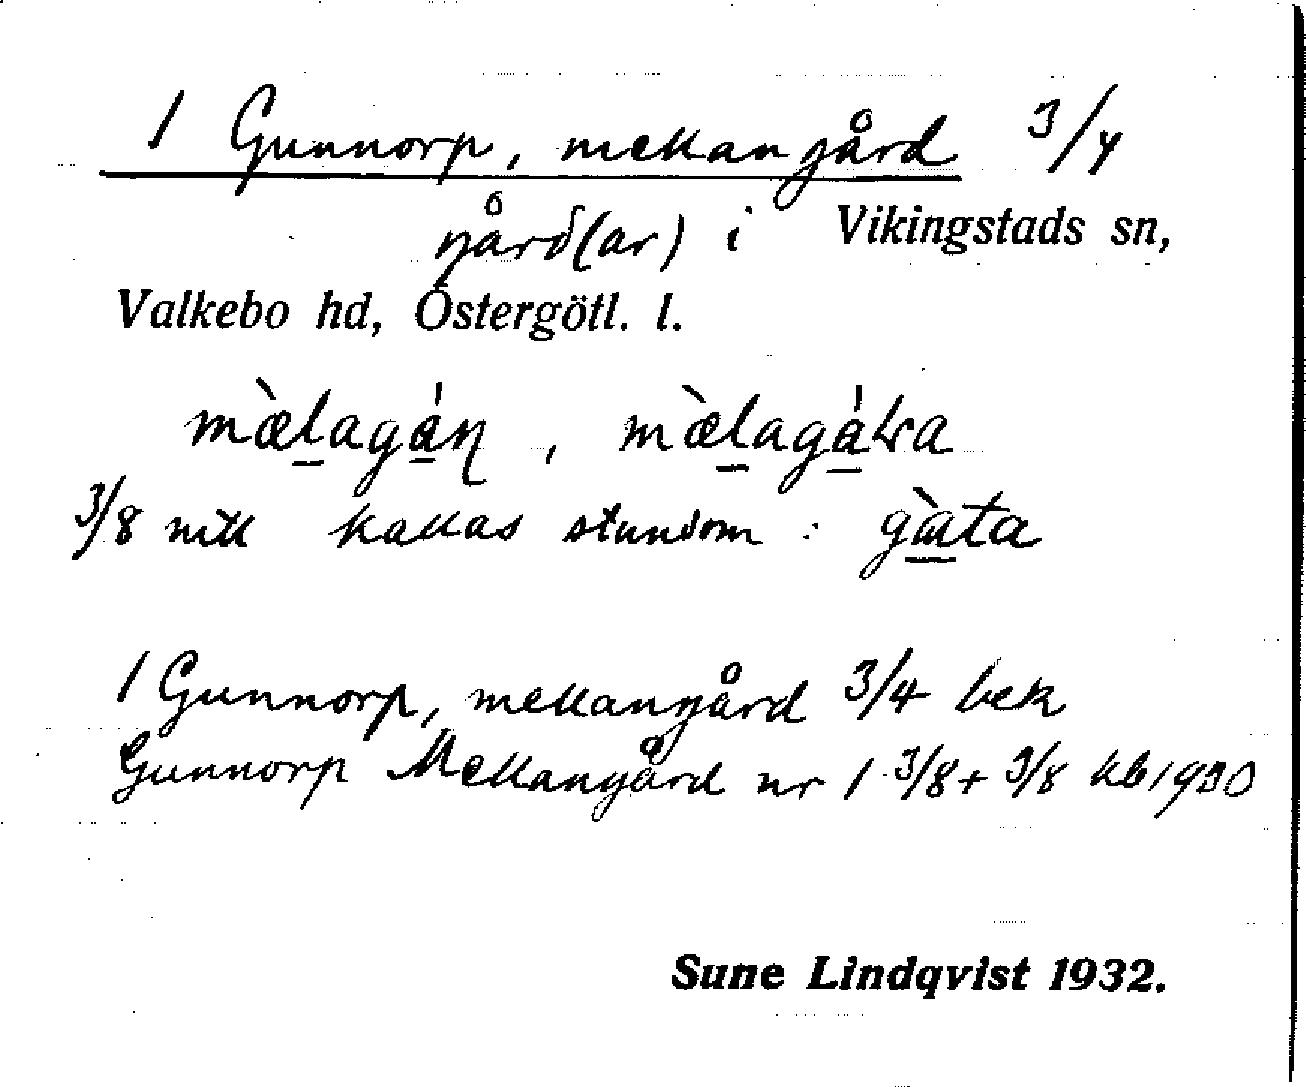 1 Gunnorp, mellangård 3/4
gård(ar) i Vikingstads sn,
Valkebo hd, Östergötl. l.
mæ̀lagáṇ, mæ̀lagáka
3/8 mtl kallas stundom: gàta
1 Gunnorp, mellangård 3/4 bek
Gunnorp Mellangård nr 1 3/8 + 3/8 kb 1930
Sune Lindqvist 1932.